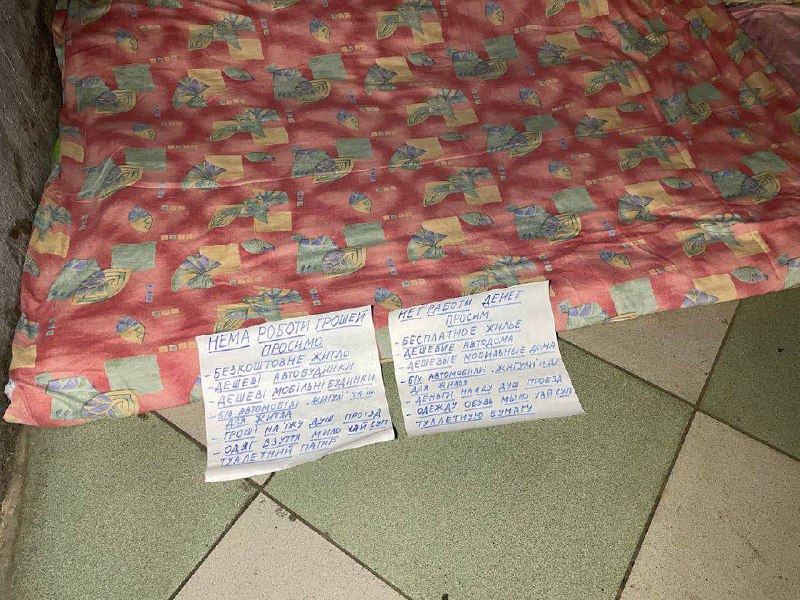 НЕМА РОБОТИ ГРОШЕЙ
ПРОСИМО
- БЕЗКОШТОВНЕ ЖИТЛО
- ДЕШЕВІ АВТОБУДИНКИ
- ДЕШЕВІ МОБІЛЬНІ БУДИНКИ
- Б/В АВТОМОБІЛІ "ЖИГУЛІ" ТА ІН.
ДЛЯ ЖИТЛА
- ГРОШІ НА ЇЖУ ДУШ ПРОЇЗД
- ОДЯГ ВЗУТТЯ МИЛО ЧАЙ СУП
ТУАЛЕТНИЙ ПАПІР
НЕТ РАБОТЫ ДЕНЕГ
ПРОСИМ
- БЕСПЛАТНОЕ ЖИЛЬЕ
- ДЕШЕВЫЕ АВТОДОМА
- ДЕШЕВЫЕ МОБИЛЬНЫЕ ДОМА
- Б/У АВТОМОБИЛИ "ЖИГУЛИ" И ДР.
ДЛЯ ЖИЛЬЯ
- ДЕНЬГИ НА ЕДУ ДУШ ПРОЕЗД
- ОДЕЖДУ ОБУВЬ МЫЛО ЧАЙ СУП
ТУАЛЕТНУЮ БУМАГУ